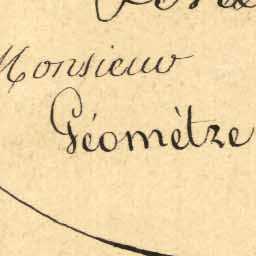 Monsieur
Géomètre